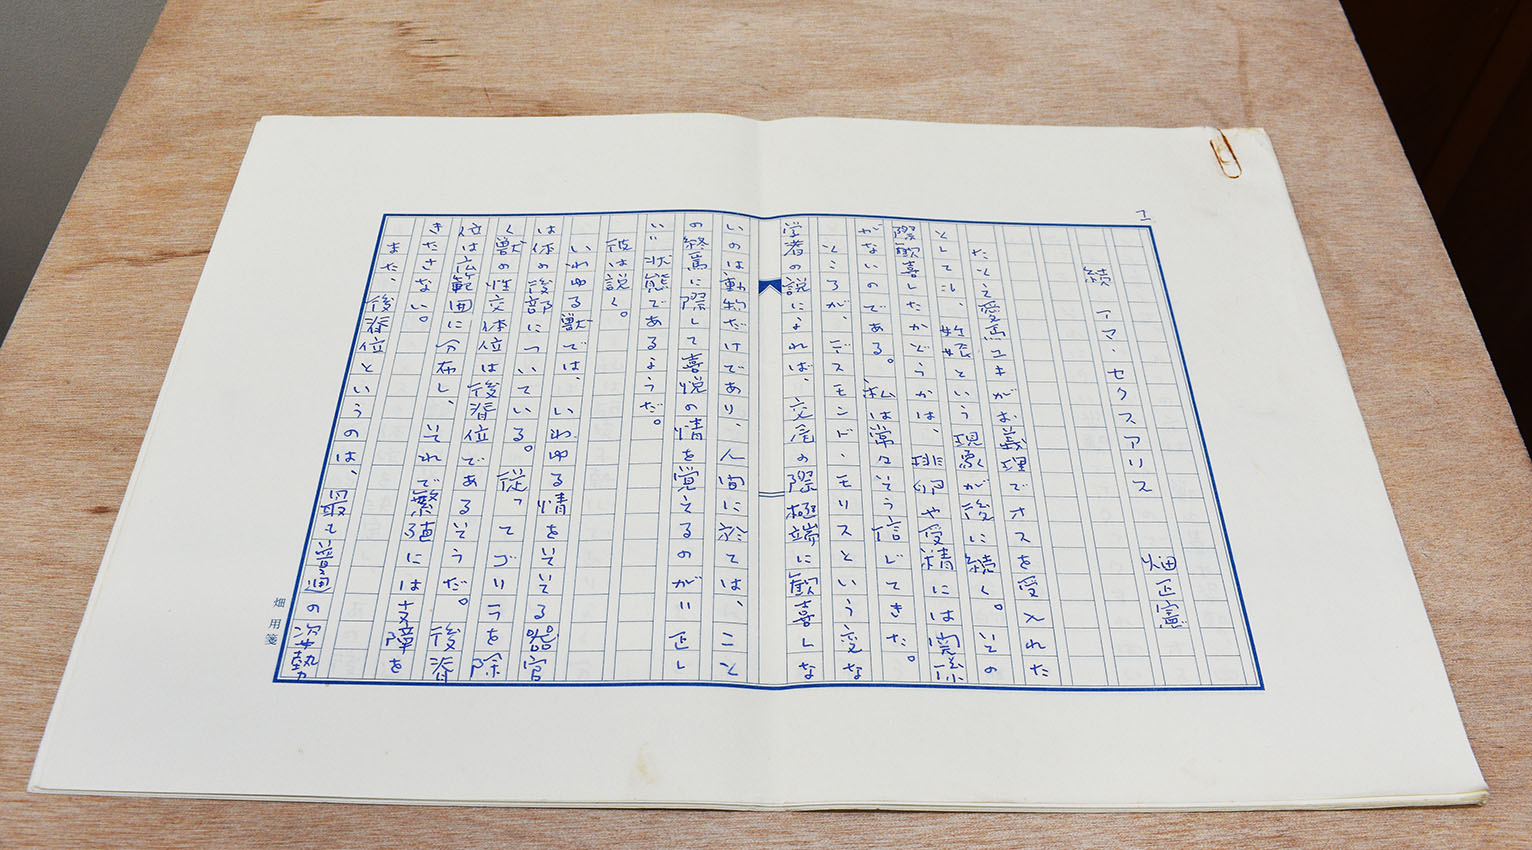 1
続 アマ・セクスアリス
畑正憲
たとえ愛馬ユキがお義理でオスを受入れた
としても、妊娠という現象が後に続く。その
際歓喜したかどうかは、排卵や受精には関係
がないのである。私は常々そう信じてきた。
ところが、デスモンド・モリスという変な
学者の説によれば、交尾の際極端に歓喜しな
いのは動物だけであり、人間に於ては、こと
の終焉に際して喜悦の情を覚えるのが〝正し
い〟状態であるようだ。
彼は説く。
いわゆる獣では、いわゆる情をそそる器官
は体の後部についている。従ってゴリラを除
く獣の性交体位は後背位であるそうだ。後背
位は広範囲に分布し、それで繁殖には支障を
きたさない。
また、後背位というのは、最も普遍の姿勢
畑用箋